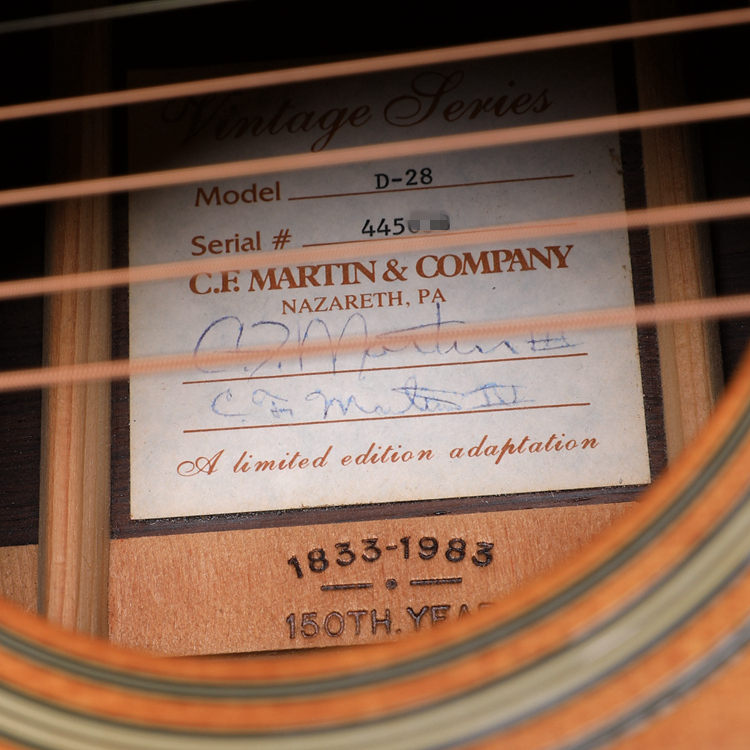 Vintage Series
Model D-28
Serial # 445
C.F. MARTIN & COMPANY
NAZARETH, PA
C. F. Martin III
C. F. Martin IV
A limited edition adaptation
1833-1983
150TH. YEAR